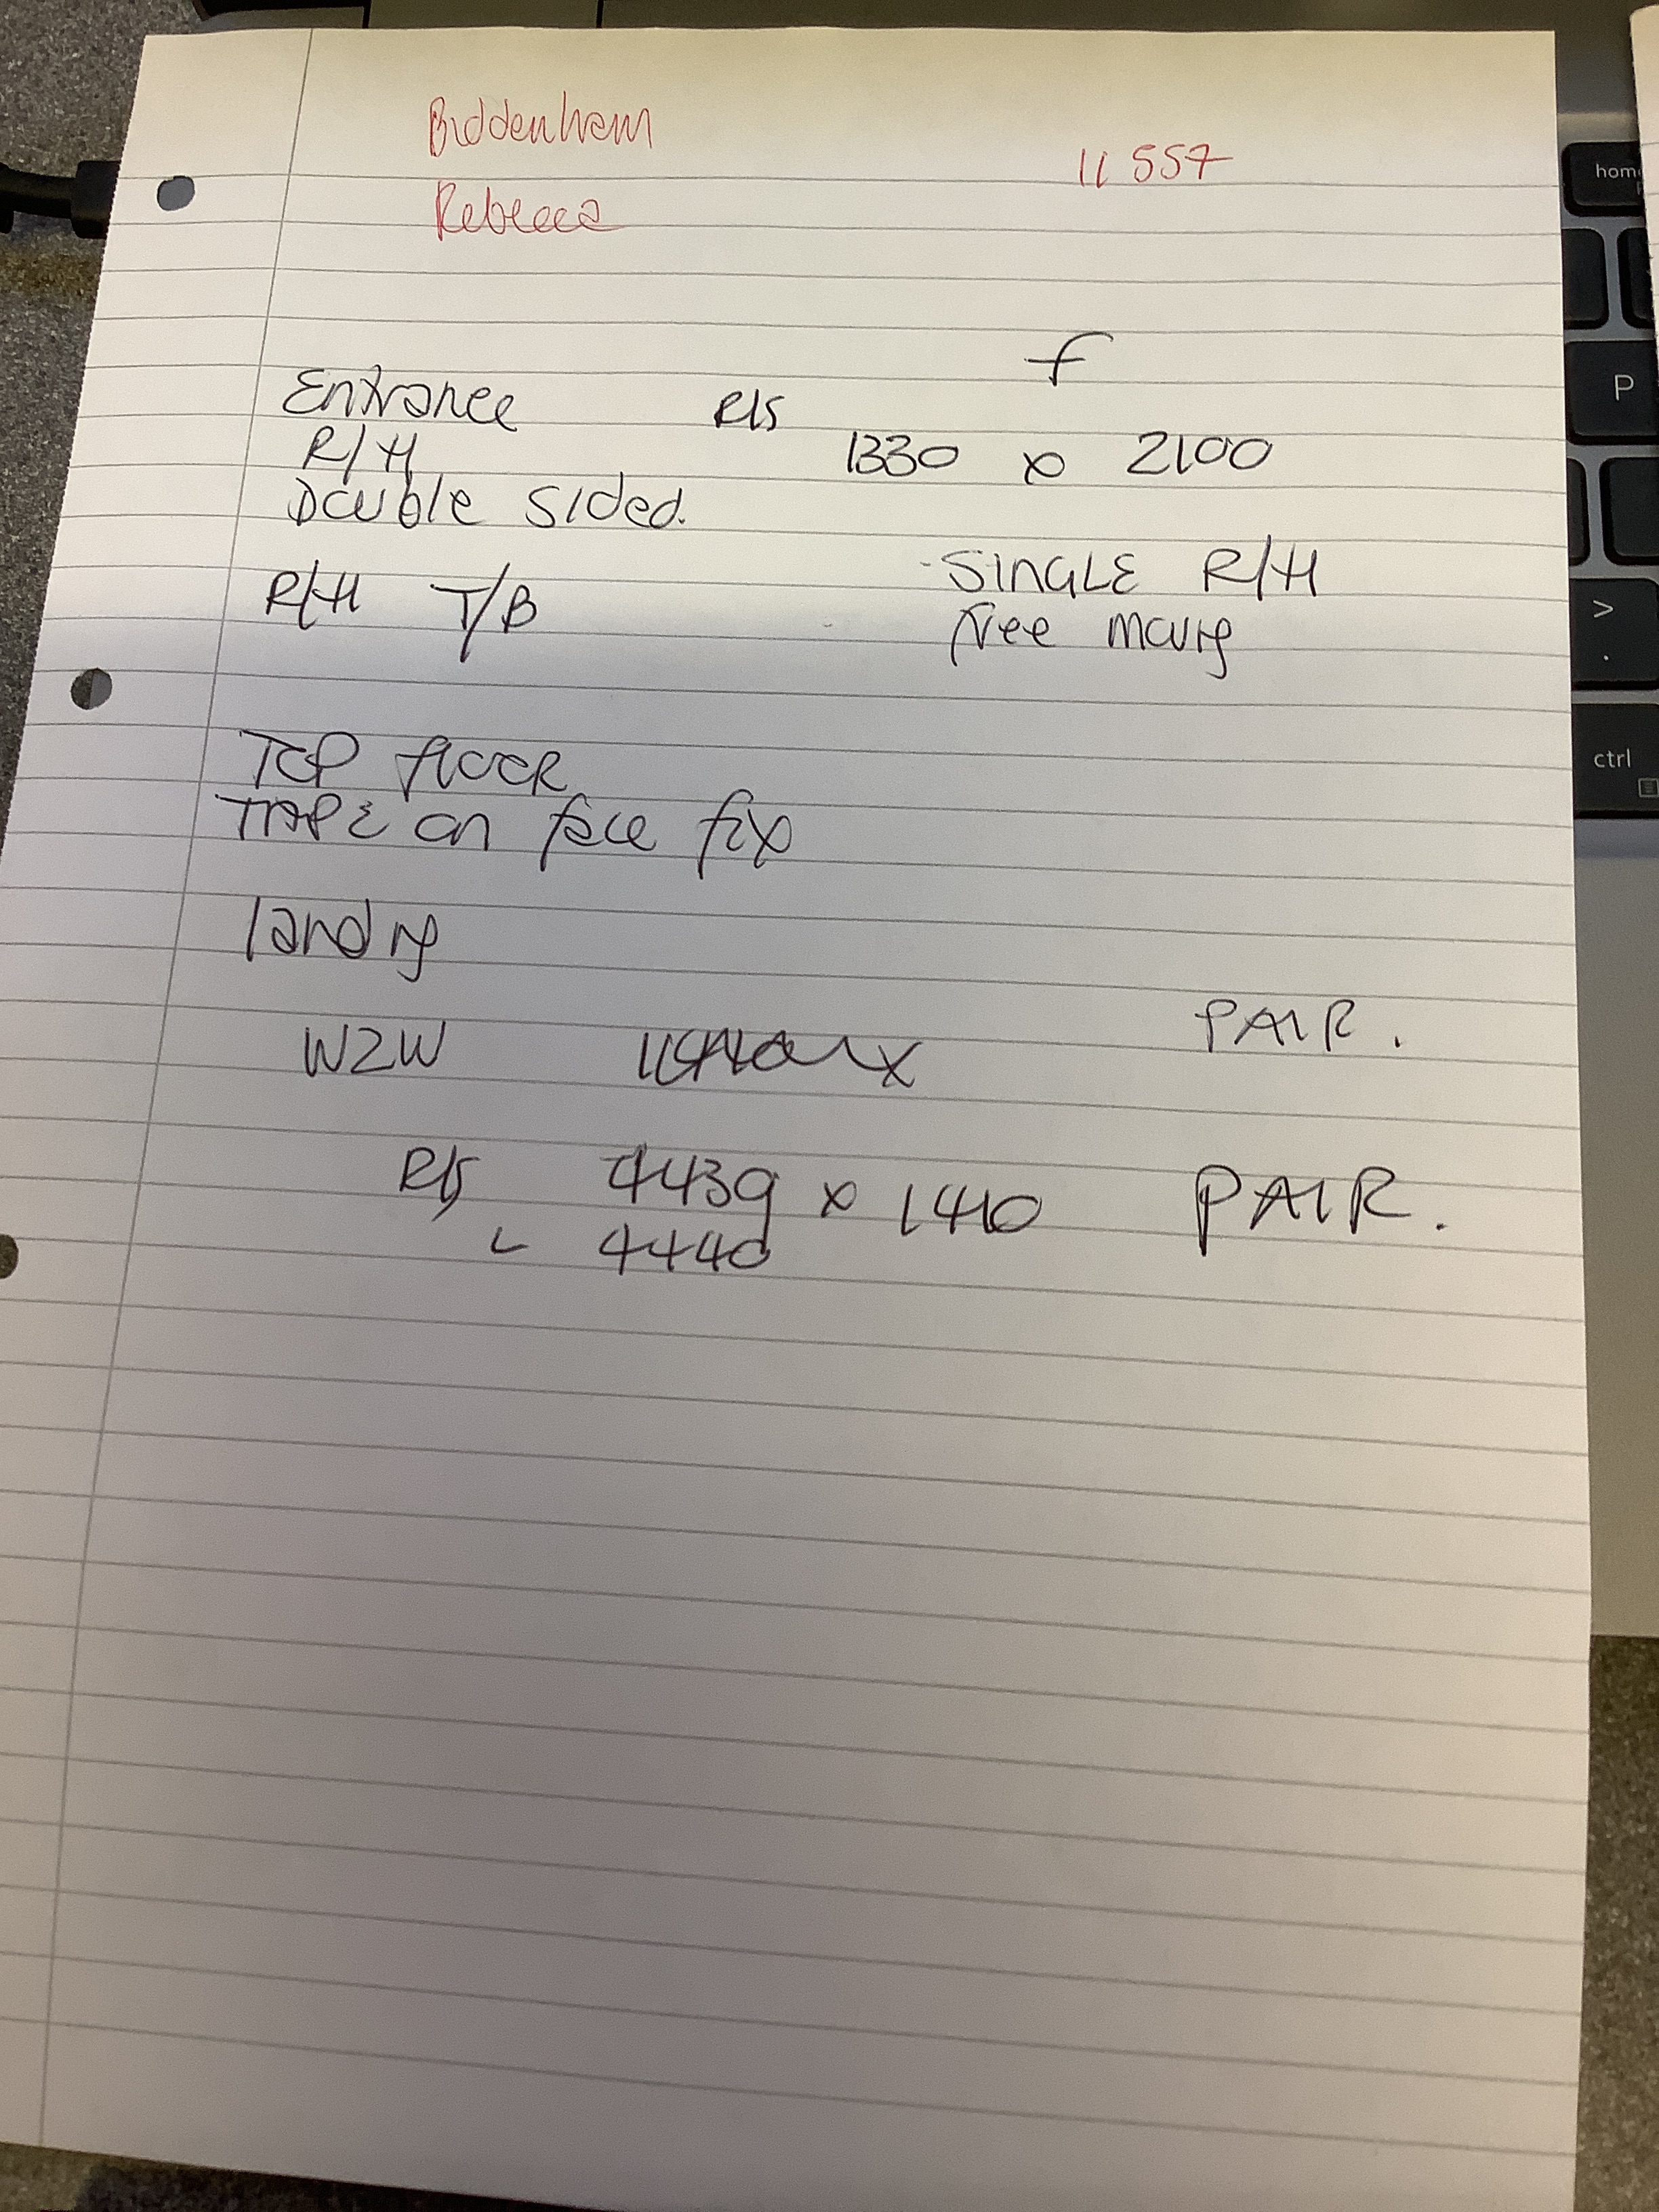 Biddenham
11557
Rebecca
f
Entrance R/S
R/H 1330 x 2100
Double sided.
R/H T/B
- SINGLE R/H
free moving
TOP floor
TAPE on face fix
landing
W2W PAIR.
R/S 4439 x 1410 PAIR.
L 4440
home
P
>
.
ctrl